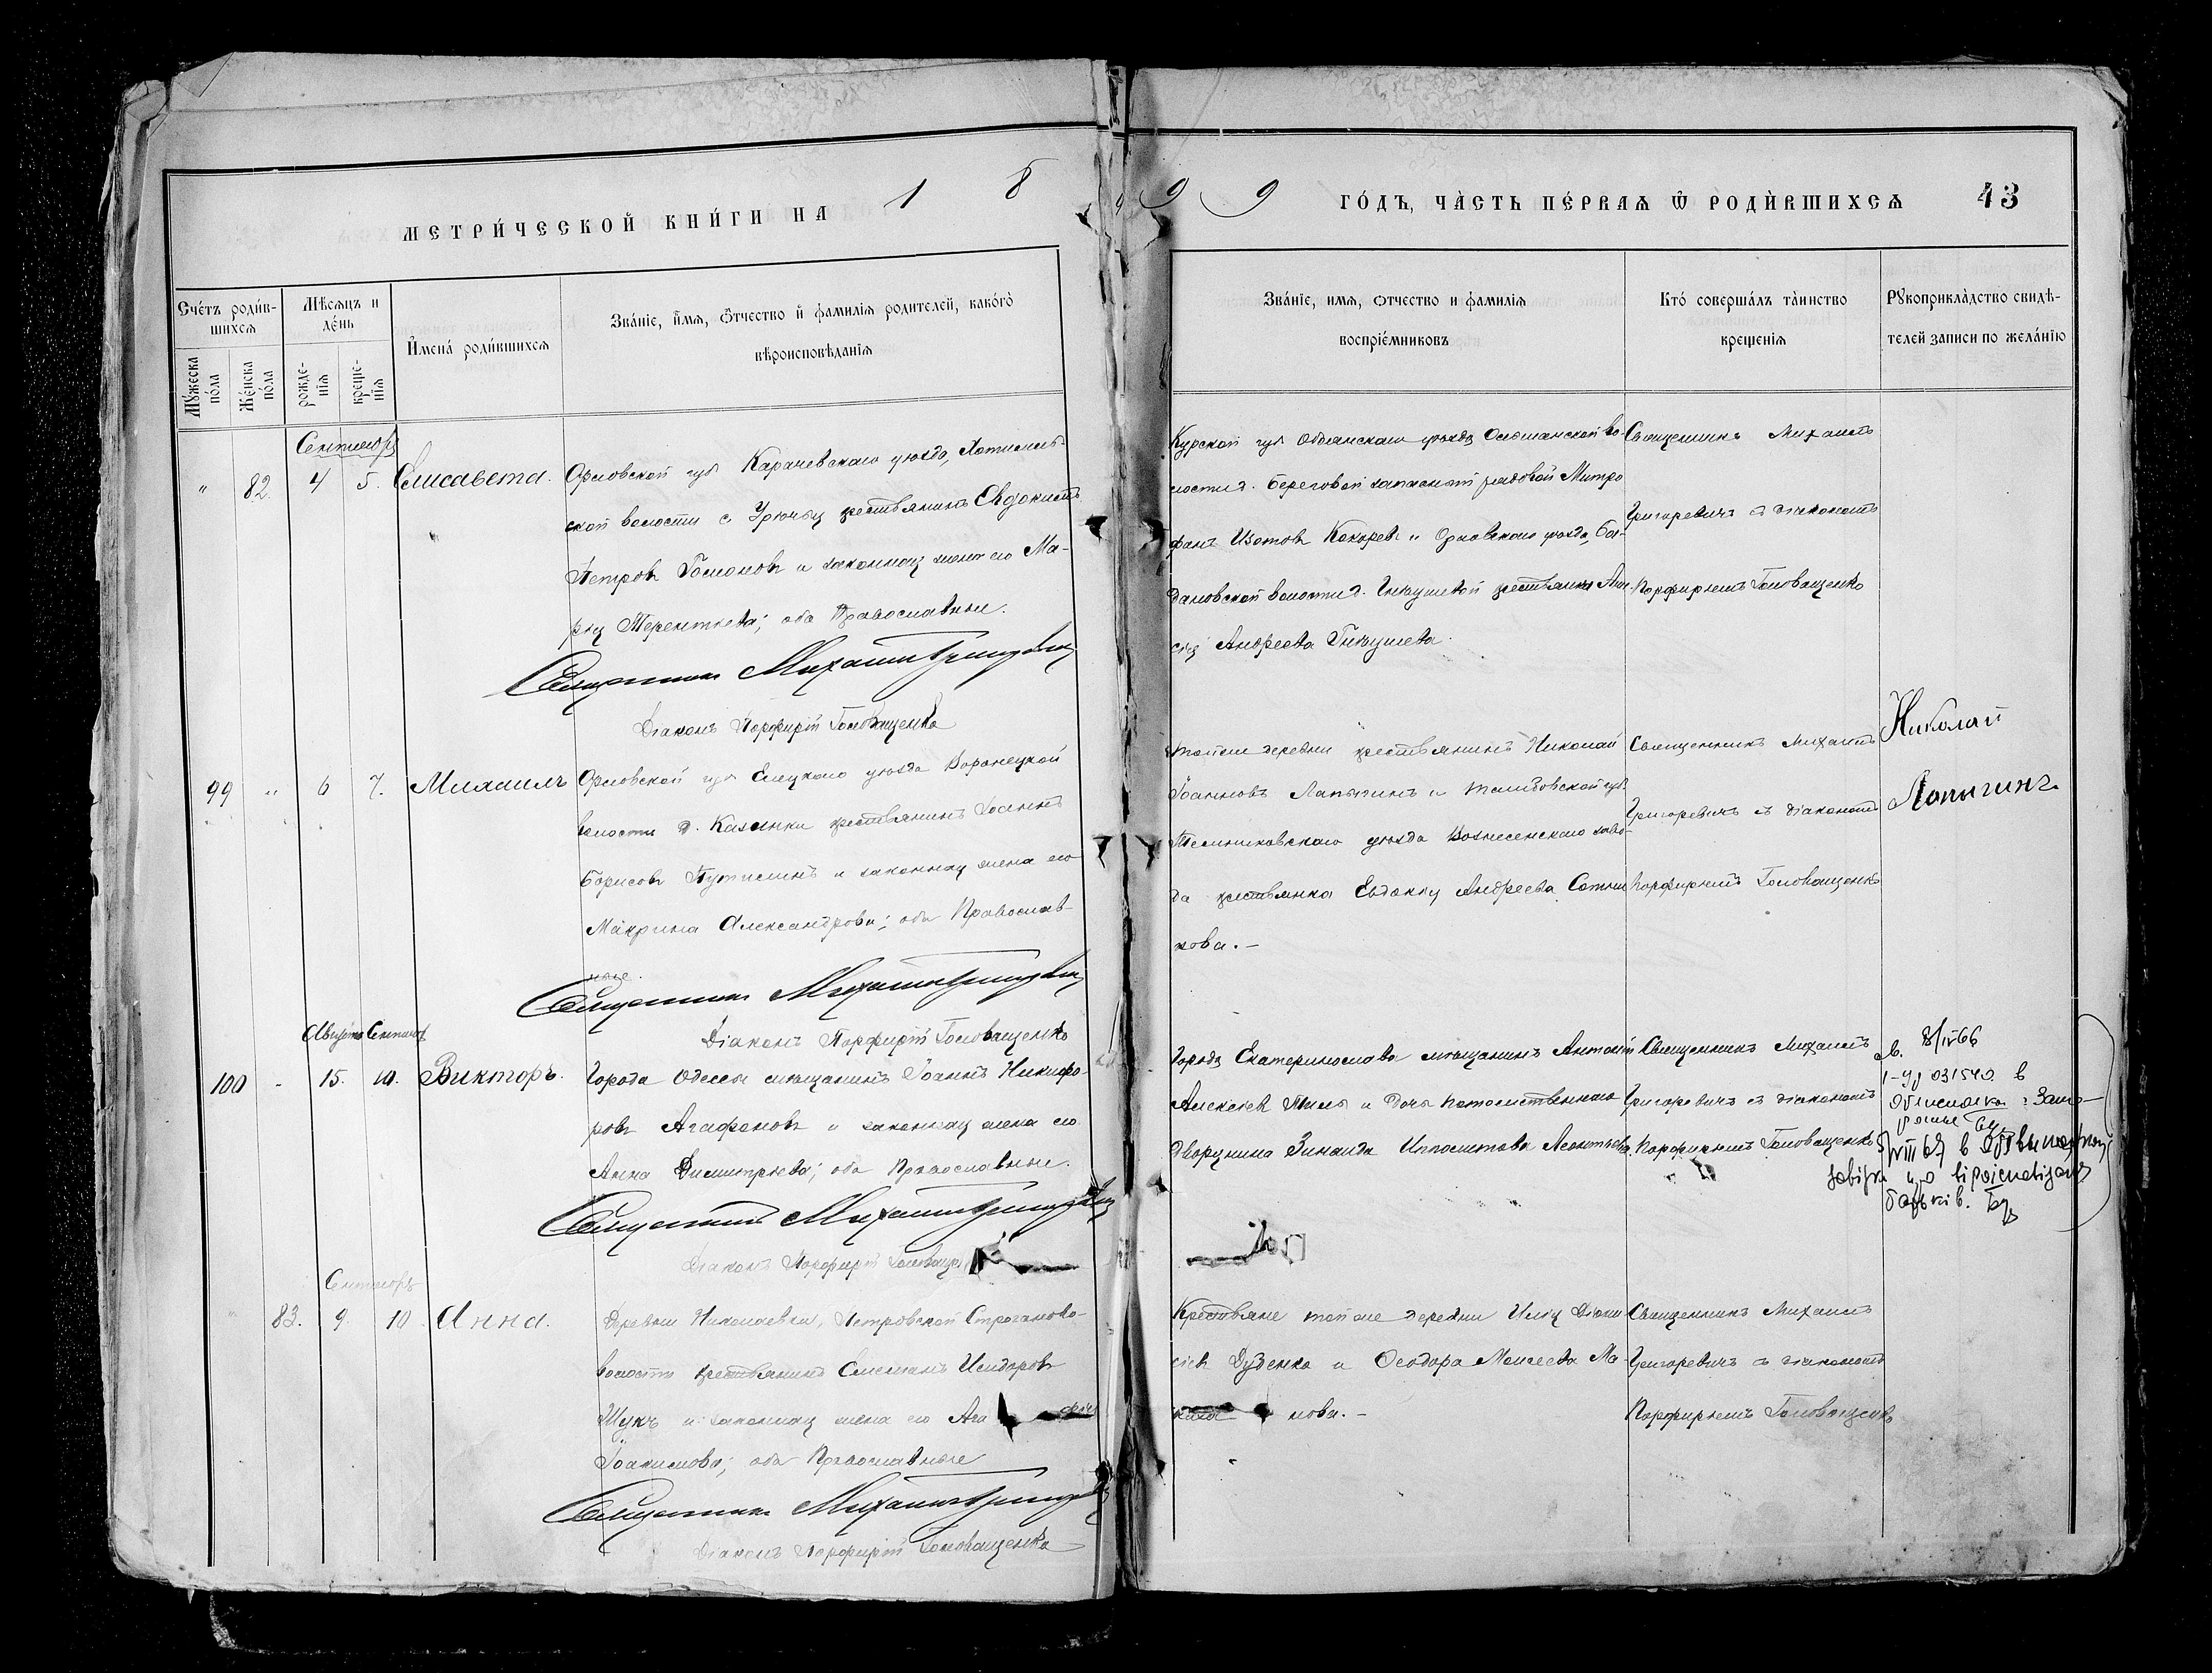 МЕТРИ́ЧЕСКОЙ КНИ́ГИ НА 18
99 ГО́ДЪ, ЧА́СТЬ ПЕ́РВАѦ Ѿ РОДИ́ВШИХСѦ 43
Сче́тъ роди́в-
шихсѧ
Мѣсѧцъ и
де́нь
Мꙋжеска
по́ла
Же́нска
по́ла
рожде-
нїѧ
креще-
нїѧ
Имена́ роди́вшихсѧ
Зва́нїе, и́мѧ, ѻтчество и фамилїѧ родителей, како́гѡ
вѣроисповѣданїѧ
Зва́нїе, имѧ, ѻтчество и фамилїѧ
воспрїе́мниковъ
Кто́ соверша́лъ та́инство
крещенїѧ
Рꙋкоприкла́дство свидѣ-
телей записи по жела́нїю
Сентябрь
" 82. 4 5. Елисавета.
Орловской губ Карачевского уѣзда, Хотимль-
ской волости с Урючья крестьянинъ Евдокимъ
Петровъ и законная жена его Ма-
рия Терентьева; оба Православные.
Священникъ Михаилъ Григоревичъ
Діаконъ Порфирій Головащенко
Курской губ Обоянскаго уѣзда во-
лости д. Береговой запасной рядовой Митро
фанъ Изотовъ Кокоревъ и Орловскаго уѣзда, Бог-
дановской волости д. крестьянка
Андреева
Священникъ Михаилъ
Григоревичъ съ діакономъ
Порфиріемъ Головащенко
99 " 6 7. Михаилъ
Орловской губ Елецкаго уѣзда Воронецкой
волости д. Казинки крестьянинъ Іоаннъ
Борисовъ и законная жена его
Макрина Александрова; оба Православ-
ные.
Священникъ Михаилъ Григоревичъ
Діаконъ Порфирій Головащенко
тойже деревни крестьянинъ Николай
Іоанновъ Лапыгинъ и Тамбовской губ
Темниковскаго уѣзда Вознесенскаго заво-
да крестьянка Евдокия Андреева Сотни
кова. –
Священникъ Михаилъ
Григоревичъ съ діакономъ
Порфиріемъ Головащенко
Николай
Лапыгинъ
Августъ Сентябрь
100 - 15. 10. Викторъ.
Города Одессы мѣщанинъ Іоаннъ Никифо-
ровъ Агафоновъ и законная жена его
Анна Димитріева; оба Православные.
Священникъ Михаилъ Григоревичъ
Діаконъ Порфирій Головащен
Города Екатеринослава мѣщанинъ Антоній
Алексѣевъ и дочь потомственнаго
дворянина Зинаида Ипполитова Леонтьева.
Священникъ Михаилъ
Григоревичъ съ діакономъ
Порфиріемъ Головащенко
в. 8/IV 66
031540 в
VIII 67 в
батьків.
Сентябрь
" 83. 9. 10. Анна.
Деревни Николаевки, Петровской Строганово-
волости крестьянинъ Симеонъ Исидоровъ
Шукъ и законная жена его Ага
Іоакимова; оба Православные
Священникъ Михаилъ Григоревичъ
Діаконъ Порфирій Головащенко
Крестьяне тойже деревни Илія Діони
сіевъ Дузенко и Ѳеодора Моисеева Ма-
нова. –
Священникъ Михаилъ
Григоревичъ съ діакономъ
Порфиріемъ Головащенко